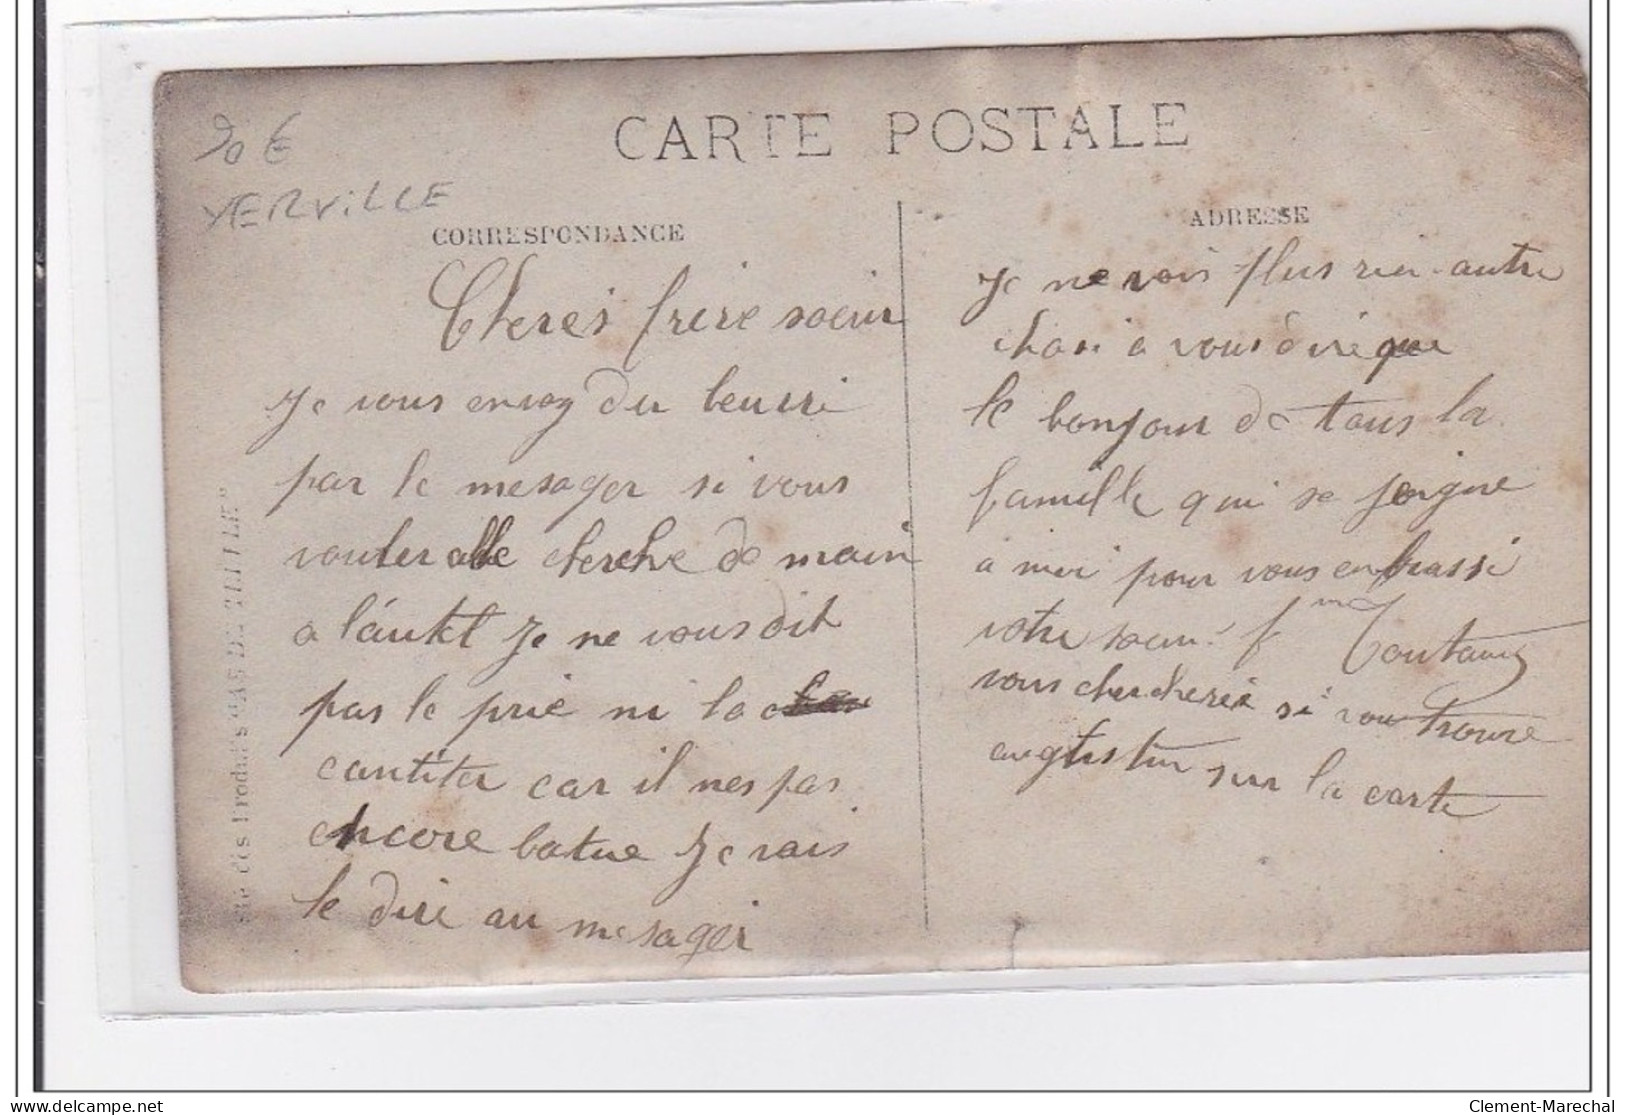 90 €
YERVILLE
CARTE POSTALE
CORRESPONDANCE
Cheres frere soeur
Je vous envoy du beurre
par le mesager si vous
vouler alle cherche de main
a
Je ne vous dit
pas le prie ni la
cantiter car il nes pas
encore batue Je vais
le dire au mesager
ADRESSE
Je ne vois plus rien autre
chose a vous dire que
le bonjour de tous la
famille qui se joigne
a moi pour vous enbrasse
votre soeur
vous chercherer si vou trouve
augustin sur la carte
Clement-Marechal